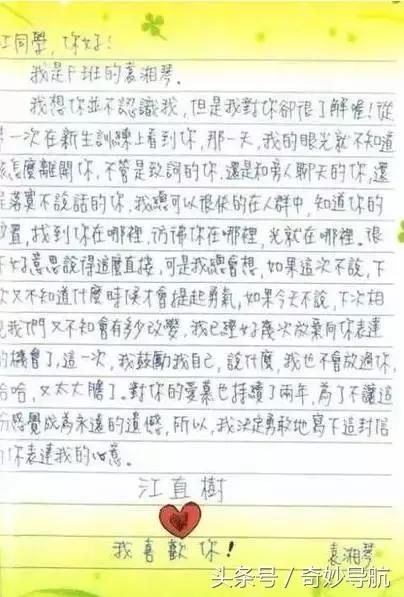 江同學,你好!
我是F班的袁湘琴。
我想你並不認識我,但是我對你卻很了解喔!從
一次在新生訓練上看到你,那一天,我的眼光就不知道
該怎麼離開你,不管是致詞的你,還是和旁人聊天的你,還
是落寞不說話的你,我總可以很快的在人群中,知道你的
位置,找到你在哪裡,彷彿你在哪裡,光就在哪裡。很
不好意思說得這麼直接,可是我總會想,如果這次不說,下
次又不知道什麼時候才會提起勇氣,如果今天不說,下次相
見我們又不知會有多少改變,我已經好幾次放棄向你表達
的機會了,這一次,我鼓勵我自己,說什麼,我也不會放過你,
哈哈,又太大膽了。對你的愛慕也持續了兩年,為了不讓這
份感覺成為永遠的遺憾,所以,我決定勇敢地寫下這封信
向你表達我的心意。
江直樹
我喜歡你!
袁湘琴
头条号/奇妙导航